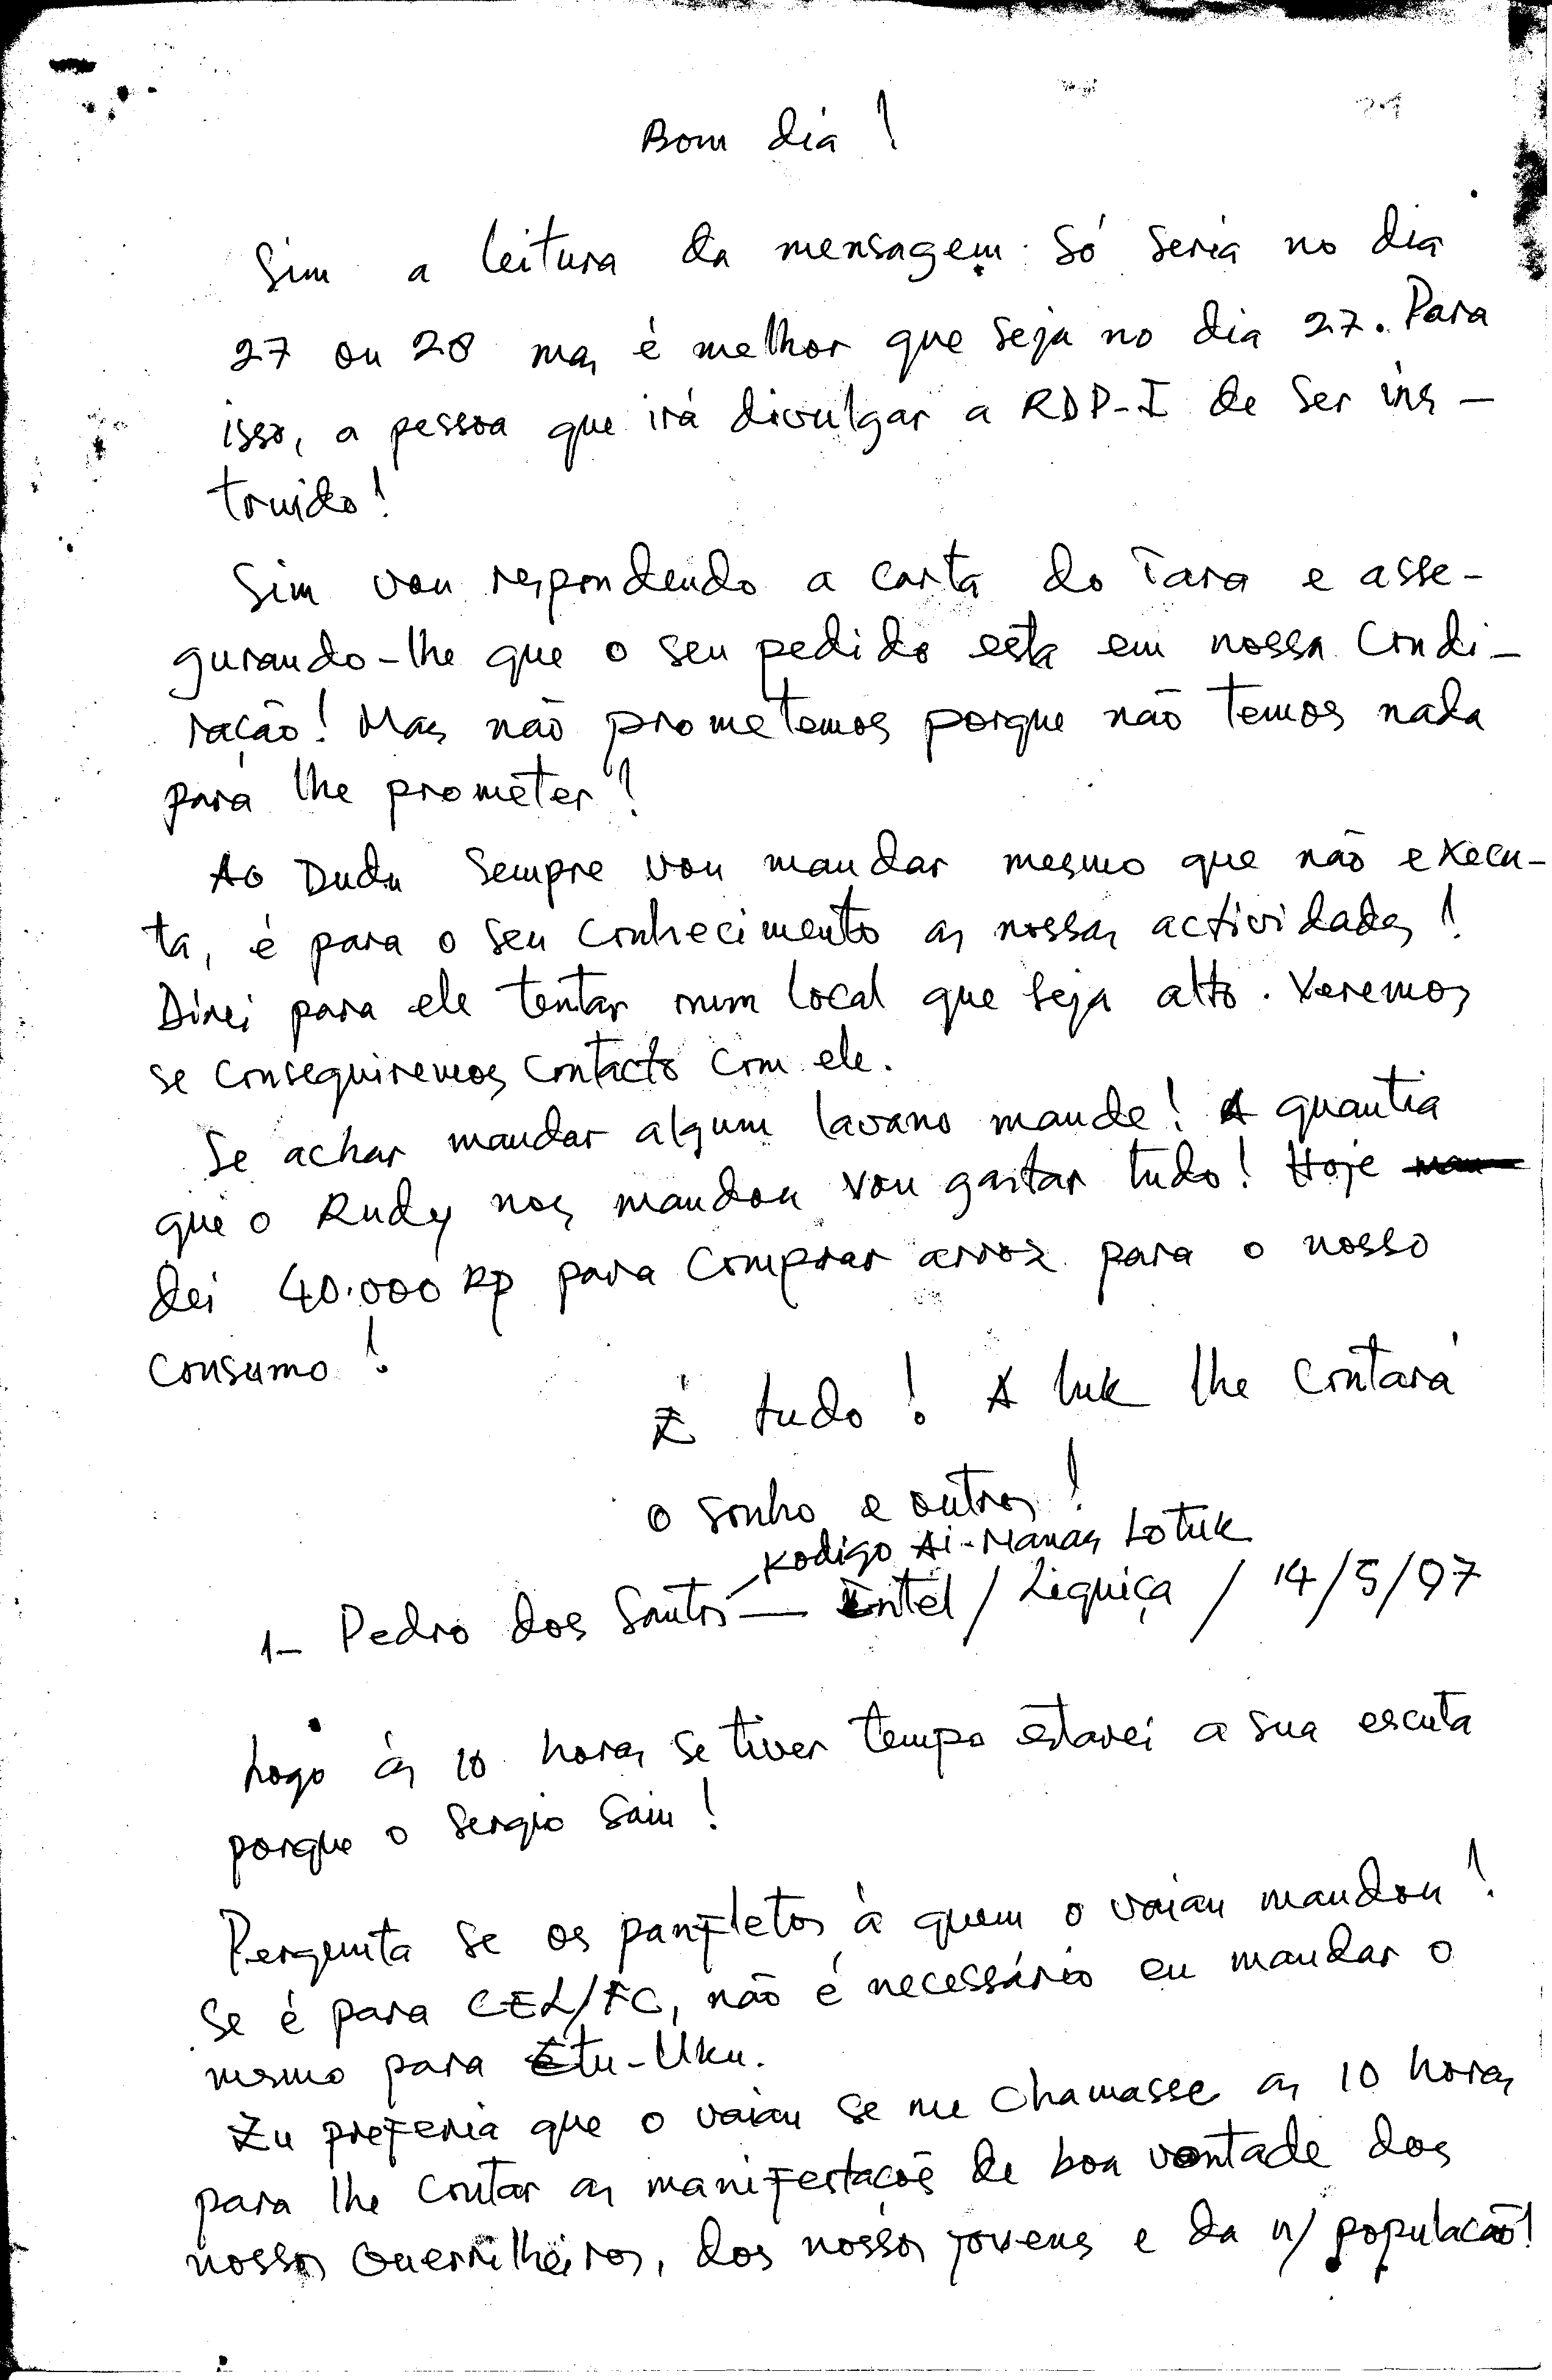 Bom dia !
Sim a leitura da mensagem só seria no dia
27 ou 28 mas é melhor que seja no dia 27. Para
isso, a pessoa que irá divulgar a RDP-I de ser ins-
truido!
Sim vou respondendo a carta do Tara e asse-
gurando-lhe que o seu pedido esta em nossa Condi-
ração! Mas não prometemos porque não temos nada
para lhe prometer!
Ao Dudu sempre vou mandar mesmo que não execu-
ta, é para o seu conhecimento as nossas actividades!
Direi para ele tentar num local que seja alto. Veremos
se conseguiremos contacto com ele.
Se achar mandar algum lavano mande! A quantia
que o Rudy nos mandou vou gastar tudo! Hoje
dei 40.000 Rp para comprar arroz para o nosso
consumo!
É tudo! A luk lhe contará
o sonho e outros!
Kodigo Ai-Manas Lotuk
1- Pedro dos Santos — Intel / Liquiça / 14/5/97
Logo ás 10 horas se tiver tempo estarei a sua escuta
porque o Sergio saiu!
Pergunta se os panfletos à quem o vaiau mandou!
Se é para CEL/FC, não é necessário eu mandar o
mesmo para Etu-Uku.
Eu preferia que o vaiau se me chamasse as 10 horas
para lhe contar as manifestacoẽ de boa vontade dos
nossos Guerrilheiros, dos nossos jovens e da n/ populacão!